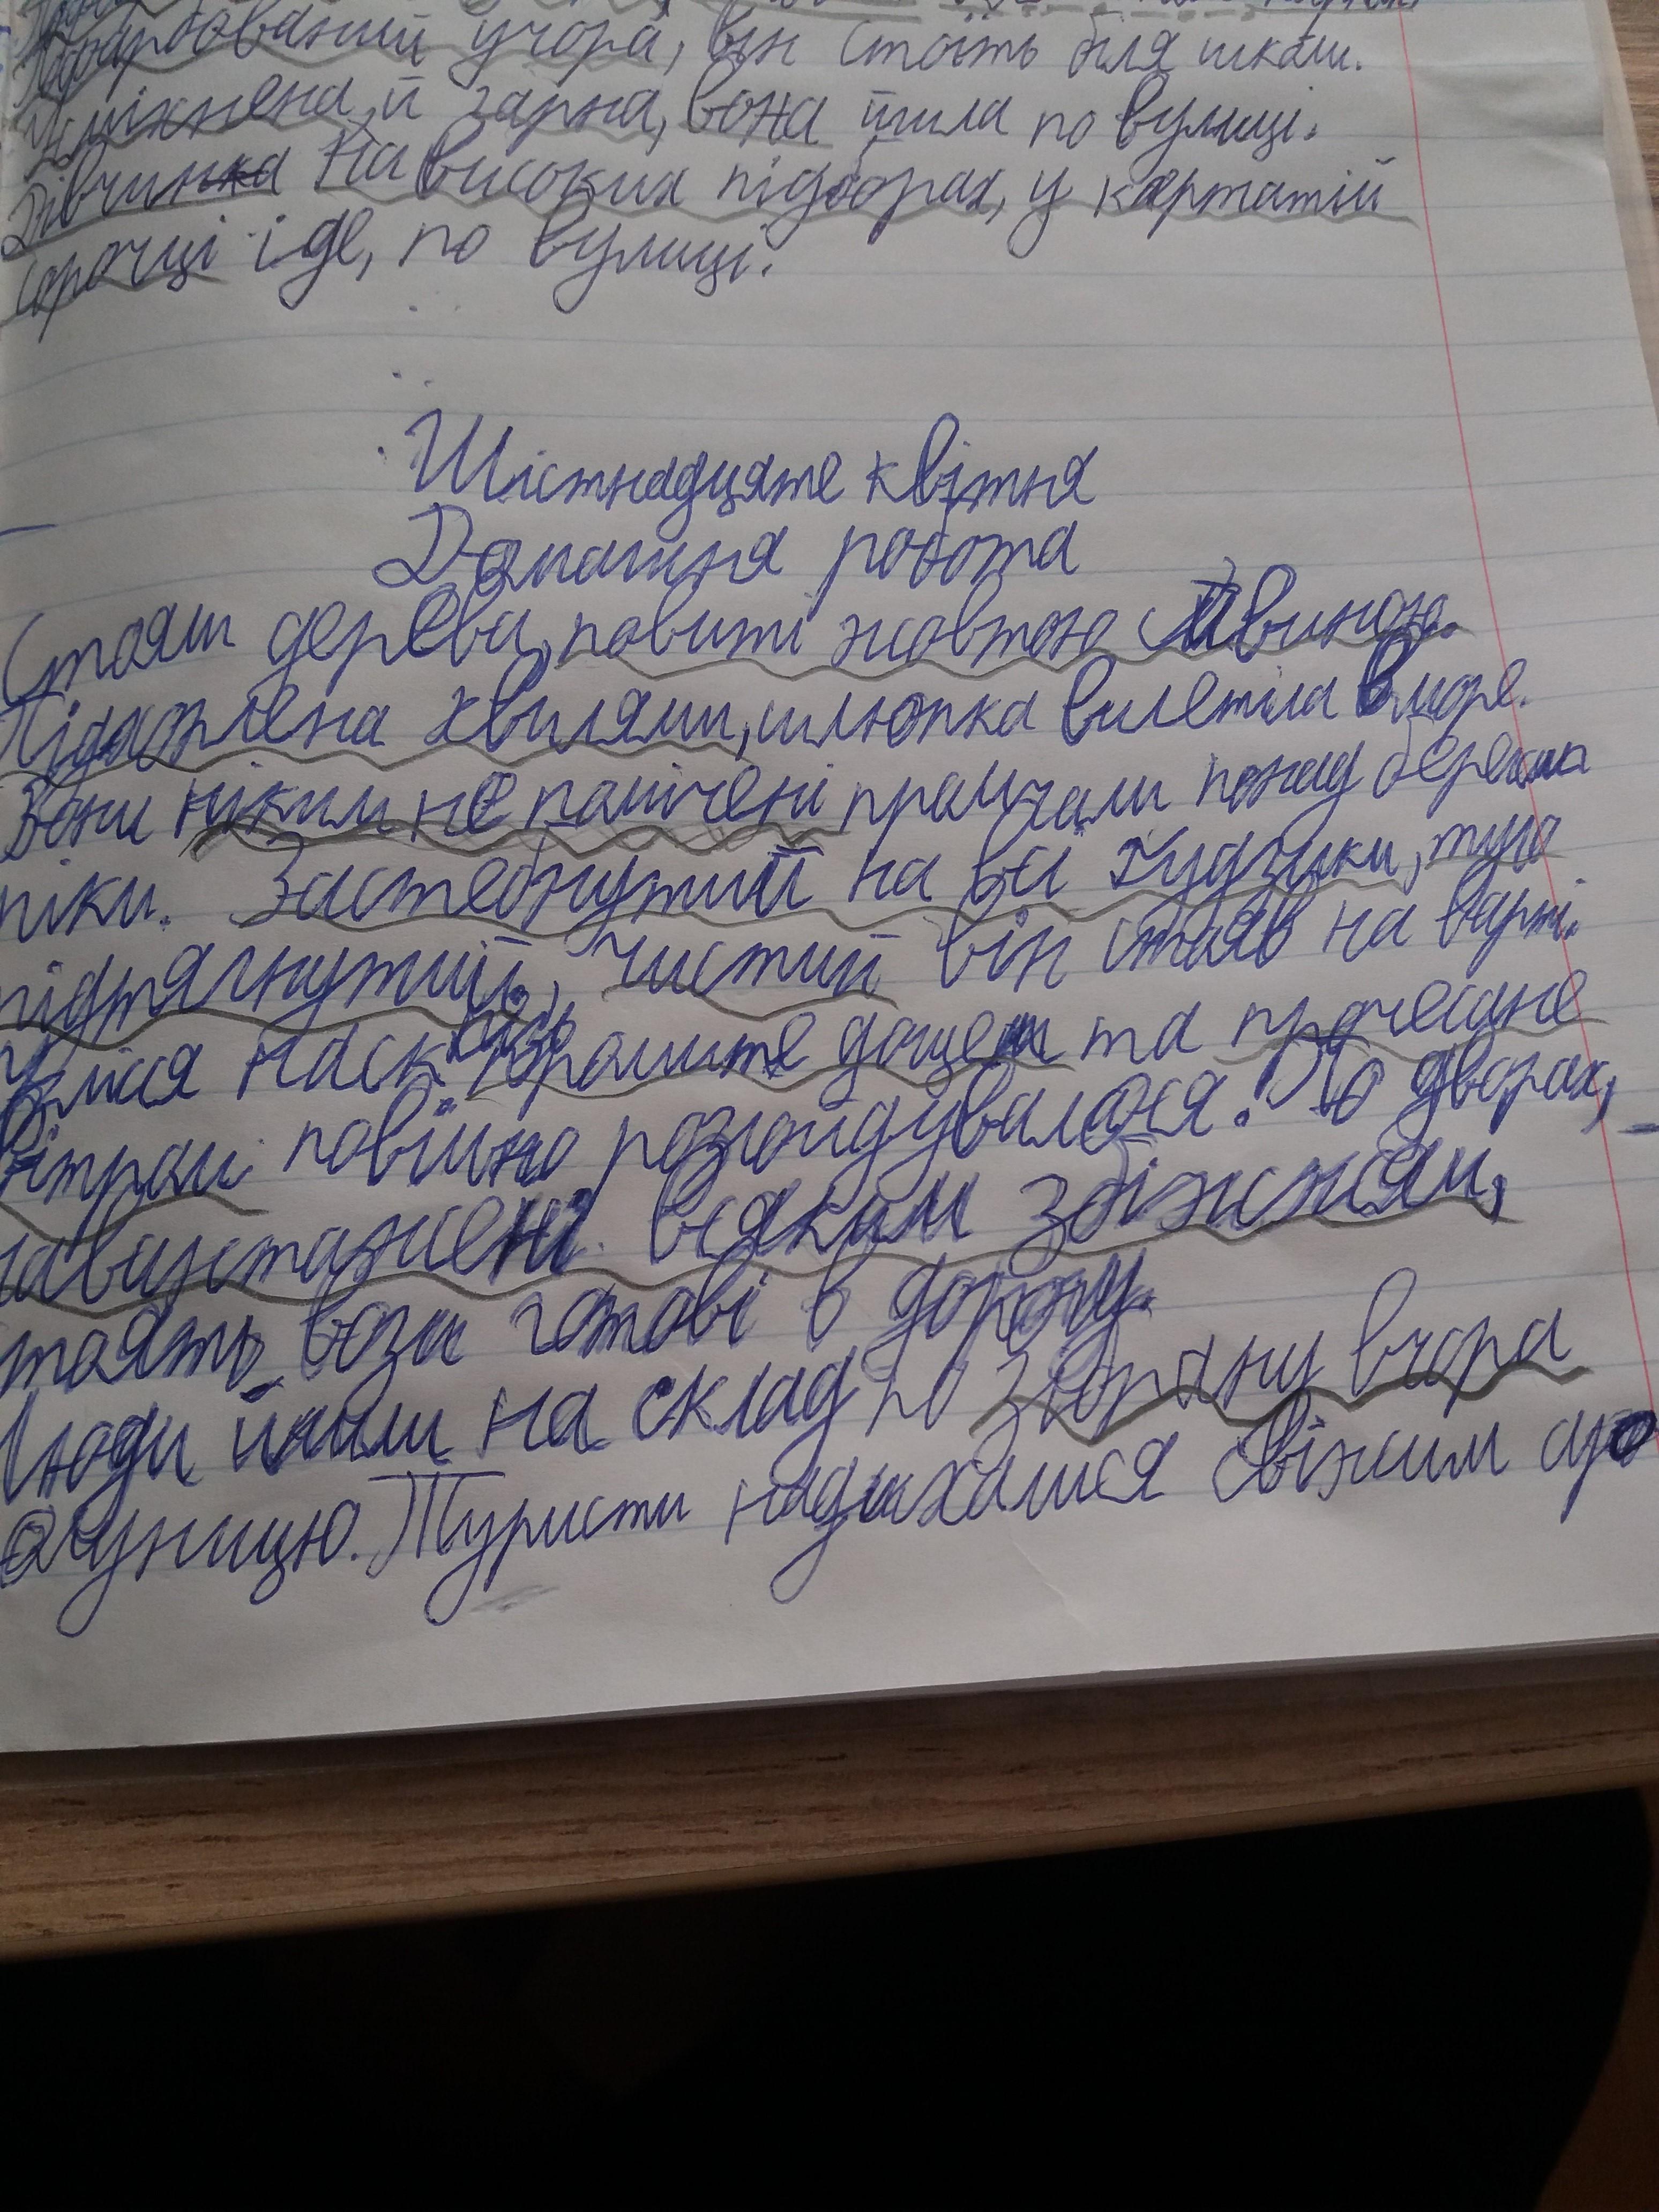 Пофарбований учора, він стоїть біля школи.
Усміхнена й гарна, вона йшла по вулиці.
Дівчинка на високих підборах, у картатій
сорочці іде, по вулиці.
Шістнадцяте квітня
Домашня робота
Стояли дерева, повиті жовтою
Підхоплена хвилями, шлюпка вилетіла в море.
Вони ніким не помічені промчали понад берегами
ріки. Застебнутий на всі гудзики, туго
підтягнутий, чистий він стояв на варті.
лися наскрізь дощем та прочесане
вітром повільно розгойдувалося. По дворах,
навантажені всяким збіжжям,
тоять вози готові в дорогу.
Люди йшли на склад по зібрану вчора
Туристи надихалися свіжим аро